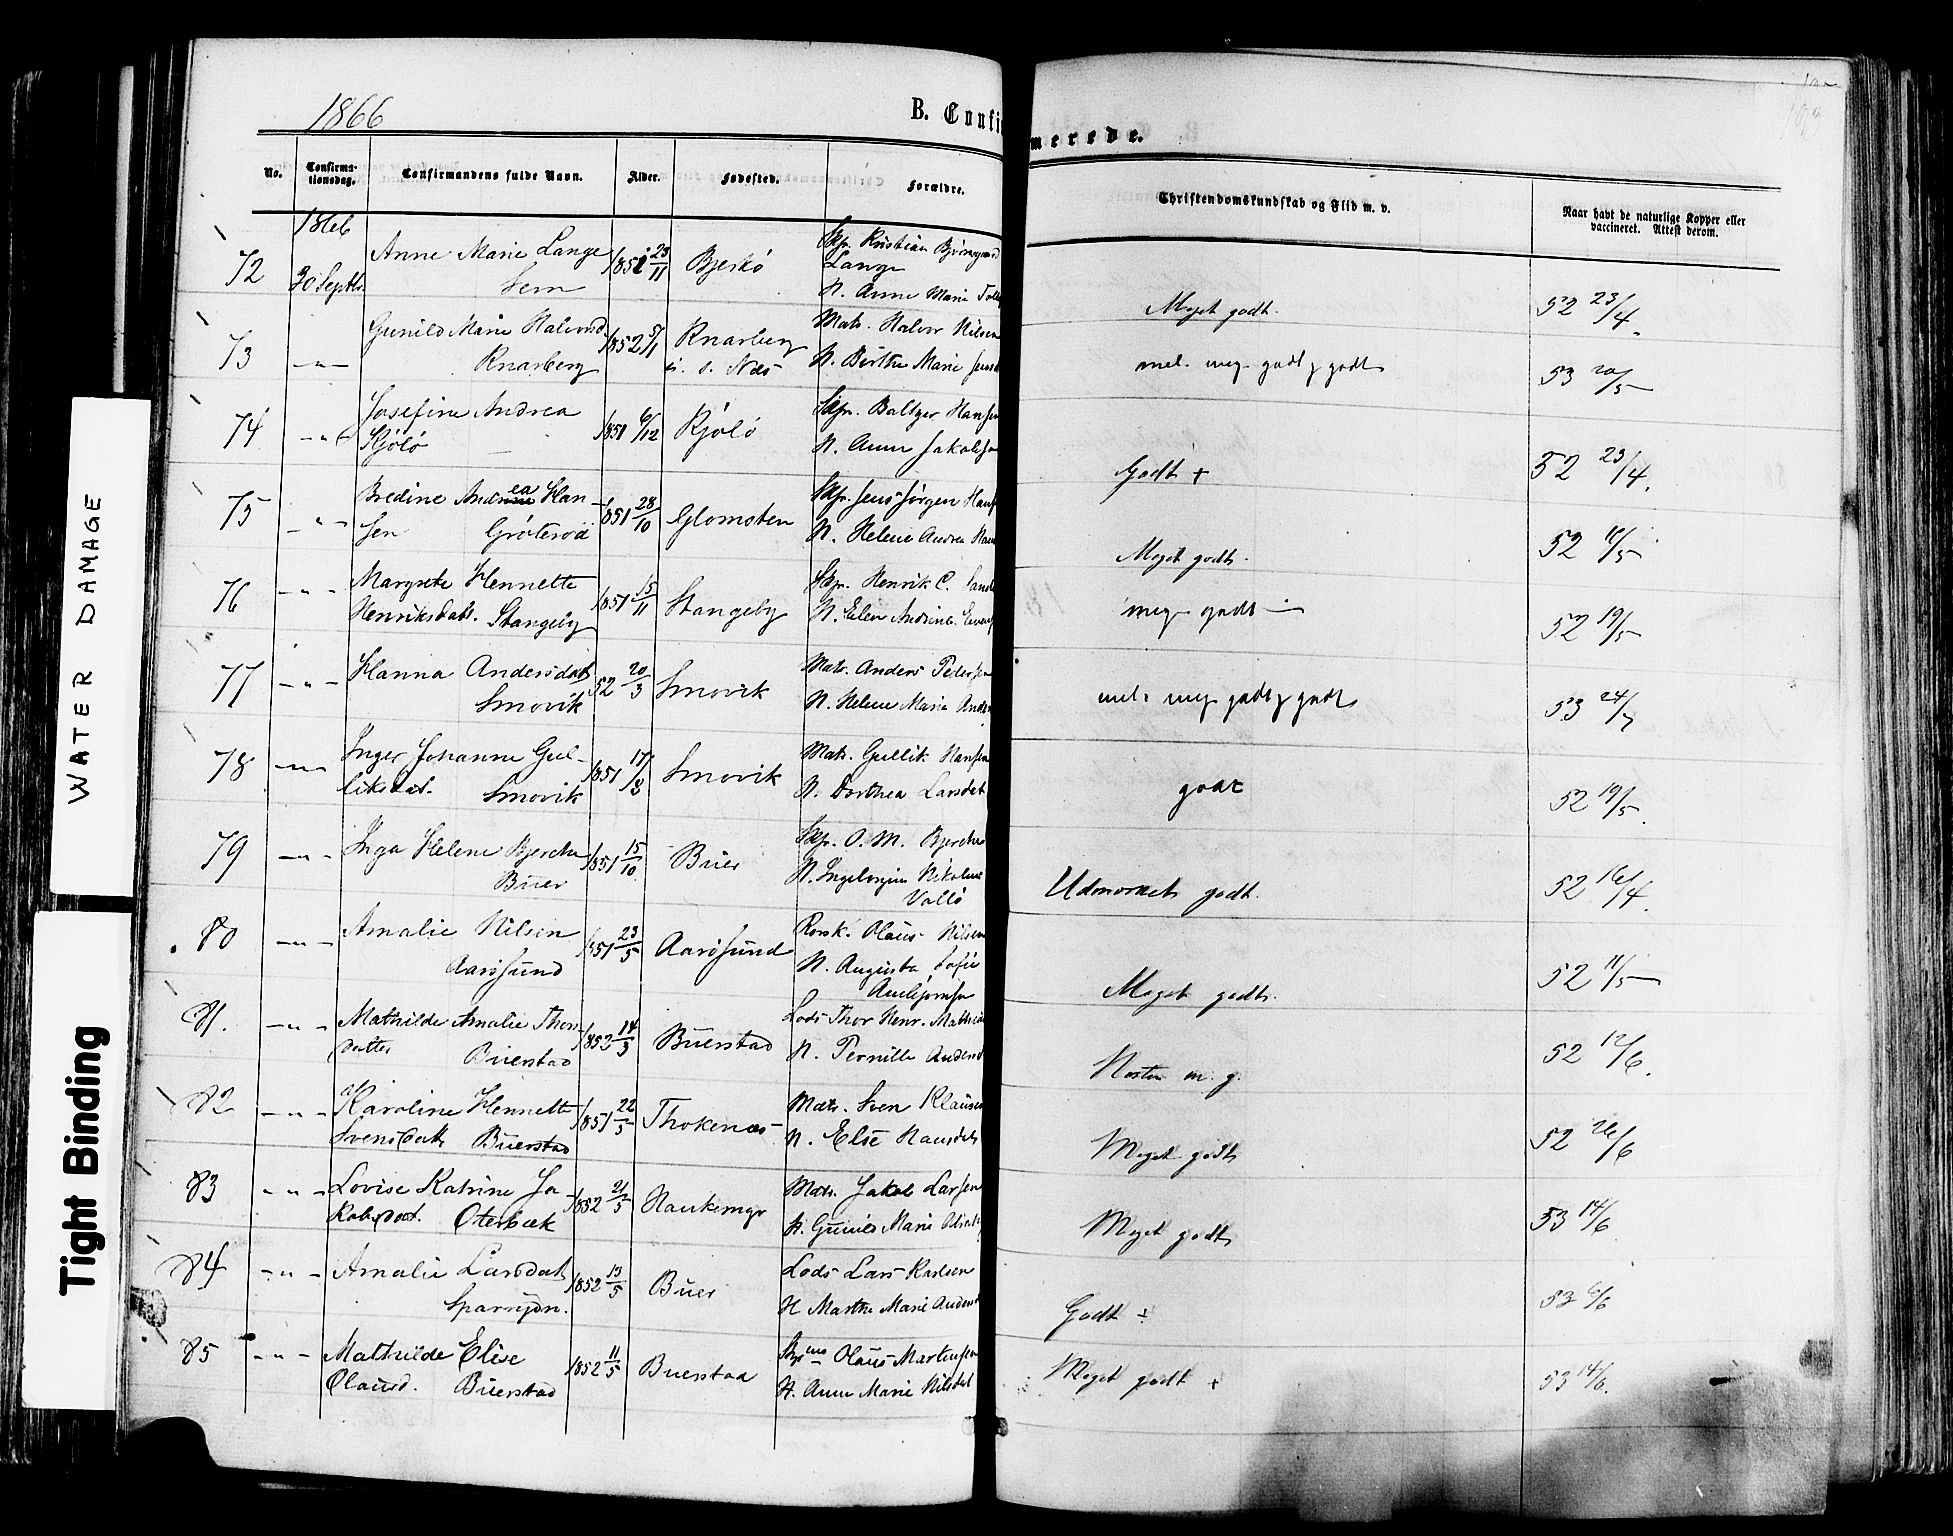 1866
B. Confirmerede.
No.
Confirmationsdag.
Confirmandens fulde Navn.
Alder.
Fødested.
Forældre.
Christendomskundskab og Flid m. v.
Naar havt de naturlige Kopper eller
vaccineret. Attest derom.
1866
72
30 Septbr.
Anne Marie Lange
Sem
1851 23/11
Bjerkö
Skpr. Kristian
Lange
H. Anne Marie
Meget godt.
52 23/4.
73
-"-
Gunild Marie Halvorsd.
Knarberg
1852 5/1
Knarberg
i. s. Næs
Matr. Halvor Nilsen
H. Birthe Marie
mel. meg. godt og godt
53 20/5
74
-"-
Josefine Andrea
Kjölö
1851 6/12
Kjölö
Skpr. Baltzer Hansen
H. Anne
Godt +
52 23/4.
75
-"-
Bredine Andrea Han-
sen Gröterød
1851 28/10
Glomsten
Skpr. Jens Jörgen
H. Helene Andrea
Meget godt.
52 11/5
76
-"-
Margrete Hennette
Henriksdatt. Stangeby
1851 15/11
Stangeby
Skpr. Henrik C.
H. Elen Andrine
meg. godt
52 19/5
77
-"-
Hanna Andersdat
Smovik
52 20/3
Smovik
Matr. Anders Pedersen
H. Helene Marie
mel. meg. godt og godt
53 24/7
78
-"-
Inger Johanne Gul-
liksdat. Smovik
1851 17/8
Smovik
Matr. Gullik Hansen
H. Dorthea Larsdat
godt
52 19/5.
79
-"-
Inga Helene Bjerche
Buer
1851 15/10.
Buer
Skp. O. M. Bjerche
H. Ingeborgine Nikoline
Vallö
Udmærket godt.
52 16/4.
80
-"-
Amalie Nilsen
Aarösund
1851 23/5
Aarösund
Rorsk. Olaus Nilsen
H. Augusta Sofie
Meget godt.
52 11/5
81.
-"-
Mathilde Amalie Thors-
datter Buerstad
1852 14/3
Buerstad
Lods Thor Henr.
H. Pernille
Næsten m. g.
52 12/6.
82
-"-
Karoline Hennette
Svensdatt. Buerstad
1851 22/5
Thokenæs
Matr. Sven Klausen
H. Else Hansdat
Meget godt
52 26/6
83
-"-
Lovise Katrine Ja-
kobsdat. Oterbæk
1852 21/5
Matr. Jakob Larsen
H. Gunild Marie
Meget godt
53 14/6
84
-"-
Amalie Larsdat
1852 13/5
Buer
Lods Lars Karlsen
H. Marthe Marie
Godt ÷
53 6/6
85
-"-
Mathilde Elise
Olausd. Buerstad
1852 11/5
Buerstad
Olaus Martinsen
H. Anne Marie Nilsdat
Meget godt +
53 14/6.
WATER DAMAGE
Tight Binding